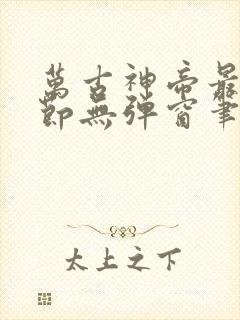 萬古神帝最
節無彈窗筆
太上之下